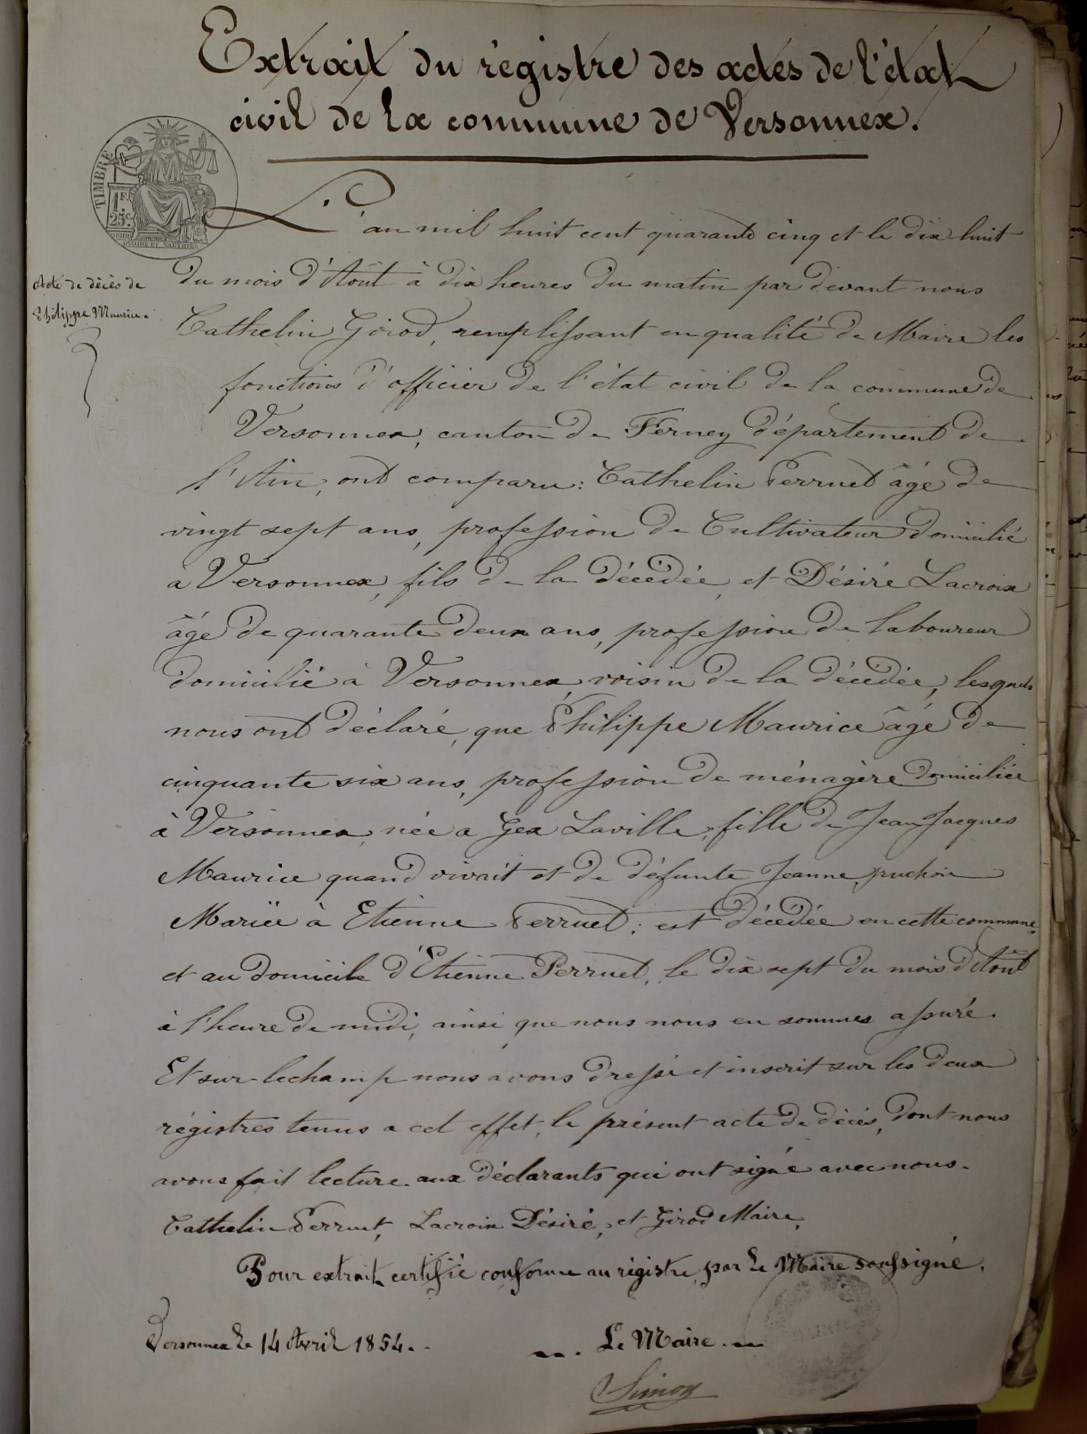 Extrait du régistre des actes de l'état
civil de la commune de Versonnex.
TIMBRE
1F.
25c.
L'an mil huit cent quarante cinq et le dix huit
Acte de décès de
Philippe Maurice.
du mois d'Août à dix heures du matin par devant nous
Cathelin Girod, remplissant en qualité de Maire les
fonctions d'officier de l'état civil de la commune de
Versonnex, canton de Ferney département de
l'Ain, ont comparu: Cathelin Perruet âgé de
vingt sept ans, profession de Cultivateur domicilié
a Versonnex, fils de la décédée, et Désiré Lacroix
âgé de quarante deux ans, profession de laboureur
domicilié à Versonnex, voisin de la décédée, lesquels
nous ont déclaré, que Philippe Maurice âgé de
cinquante six ans, profession de ménagère domiciliée
à Versonnex, née a Gex Laville, fille de Jean Jacques
Maurice quand vivait et de défunte Jeanne
Mariée à Etienne Perruet; est décédée en cette commune,
et au domicile d'Étienne Perruet, le dix sept du mois d'Août
à l'heure de midi, ainsi que nous nous en sommes assuré.
Et sur-lechamp nous avons dressé et inscrit sur les deux
régistres tenus a cet effet, le présent acte de décès, dont nous
avons fait lecture aux déclarants qui ont signé avec nous.
Cathelin Perruet, Lacroix Désiré, et Girod Maire,
Pour extrait certifié conforme au régistre, par le Maire soussigné.
Versonnex le 14 Avril 1854.
Le Maire.